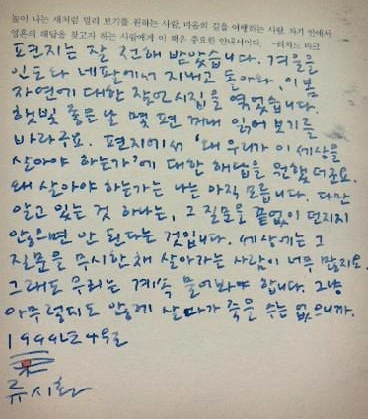 높이 나는 새처럼 멀리 보기를 원하는 사람, 마음의 길을 여행하는 사람, 자기 안에서
영혼의 해답을 찾고자 하는 사람에게 이 책은 중요한 안내서이다. —리처드 바크
편지는 잘 전해 받았습니다. 겨울을
인도와 네팔에서 지내고 돌아와, 이 봄
자연에 대한 잠언시집을 엮었습니다.
햇빛 좋은 날 몇 편 꺼내 읽어 보기를
바라구요. 편지에서 '왜 우리가 이 세상을
살아야 하는가'에 대한 해답을 원했더군요.
왜 살아야 하는가는 나는 아직 모릅니다. 다만
알고 있는 것 하나는, 그 질문을 끝없이 던지지
않으면 안 된다는 것입니다. 세상에는 그
질문을 무시한 채 살아가는 사람이 너무 많지요.
그래도 우리는 계속 물어봐야 합니다. 그냥
아무렇지도 않게 살다가 죽을 수는 없으니까.
1999년 4월
류시화